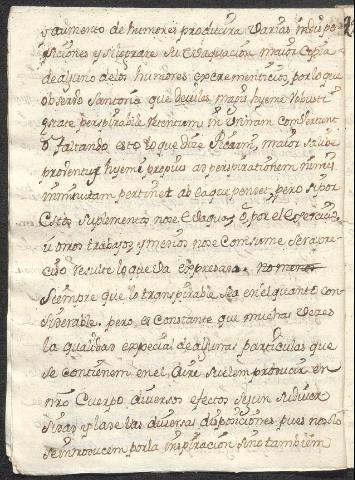 y aumento de humores producira varias indispo
siciones y si lograre su evaquacion maior copia
de alguno de los humores excrementicios, por lo que
observo Santorio que deviles magis hyeme robusti
estate perspirabile retentum in urinam convertunt
o faltando esto lo que dize maior salive
proventus hyeme propius ad perspirationem nimis
imminutam pertinet ab ea que pendet, pero si por
estos suplementos no se evaqua, o por el exercicio
u otros trabajos y menios no se consume sera pre
ciso resulte lo que va expresado.
siempre que lo transpirable sea en el quanto con
siderable. pero es constante que muchas vezes
la qualidad expecial de algunas particulas que
se contienen en el aire suelen producir en
nro Cuerpo diversos efectos segun su diver
sidad y las diversas disposiciones pues no solo
se introducen por la inspiracion sino tambien